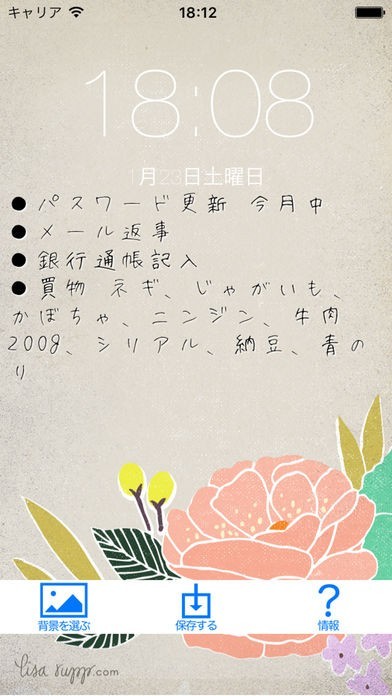 キャリア 18:12
18:08
1月23日土曜日
● パスワード更新 今月中
● メール返事
● 銀行通帳記入
● 買物 ネギ、じゃがいも、
かぼちゃ、ニンジン、牛肉
200g、シリアル、納豆、青の
り
背景を選ぶ 保存する ? 情報
lisa rupp.com